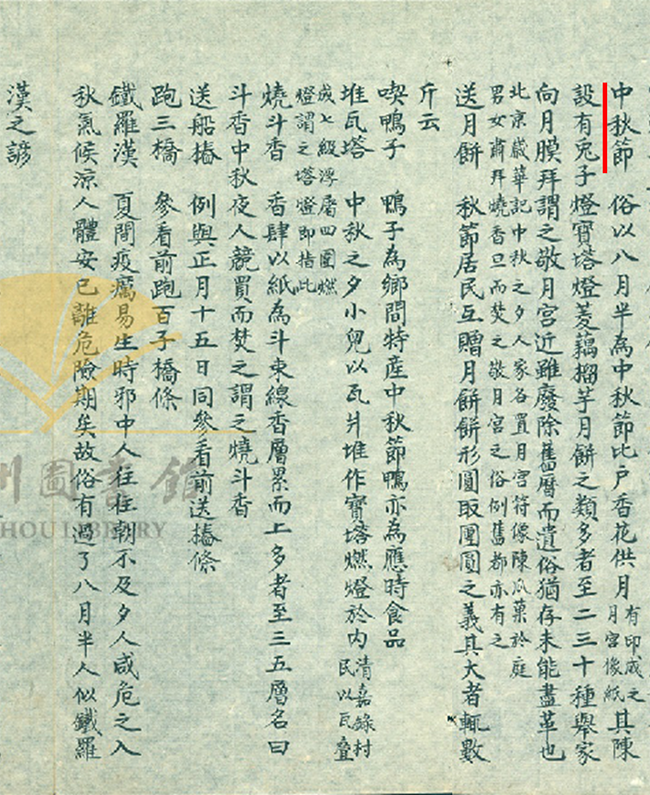 中秋節 俗以八月半為中秋節比户香花供月有印成之月宮像紙其陳
設有兎子燈寶塔燈菱藕榴芋月餅之類多者至二三十種舉家
向月膜拜謂之敬月宮近雖廢除舊曆而遺俗猶存未能盡革也
北京歲華記中秋之夕人家各置月宮符像陳瓜菓於庭
男女肅拜燒香旦而焚之敬月宮之俗例舊都亦有之
送月餅 秋節居民互贈月餅餅形圓取團圓之義其大者輒數
斤云
喫鴨子 鴨子為鄉間特産中秋節鴨亦為應時食品
堆瓦塔 中秋之夕小兒以瓦片堆作寶塔燃燈於内清嘉錄村民以瓦叠
成七級浮屠四圍燃
燈謂之塔燈即指此
燒斗香 香肆以紙為斗束線香層累而上多者至三五層名曰
斗香中秋夜人競買而焚之謂之燒斗香
送船樁 例與正月十五日同參看前送樁條
跑三橋 參看前跑百子橋條
鐵羅漢 夏間疫癘易生時邪中人往往朝不及夕人咸危之入
秋氣候涼人體安已離危險期矣故俗有過了八月半人似鐵羅
漢之諺
州圖書館
HOU LIBRARY